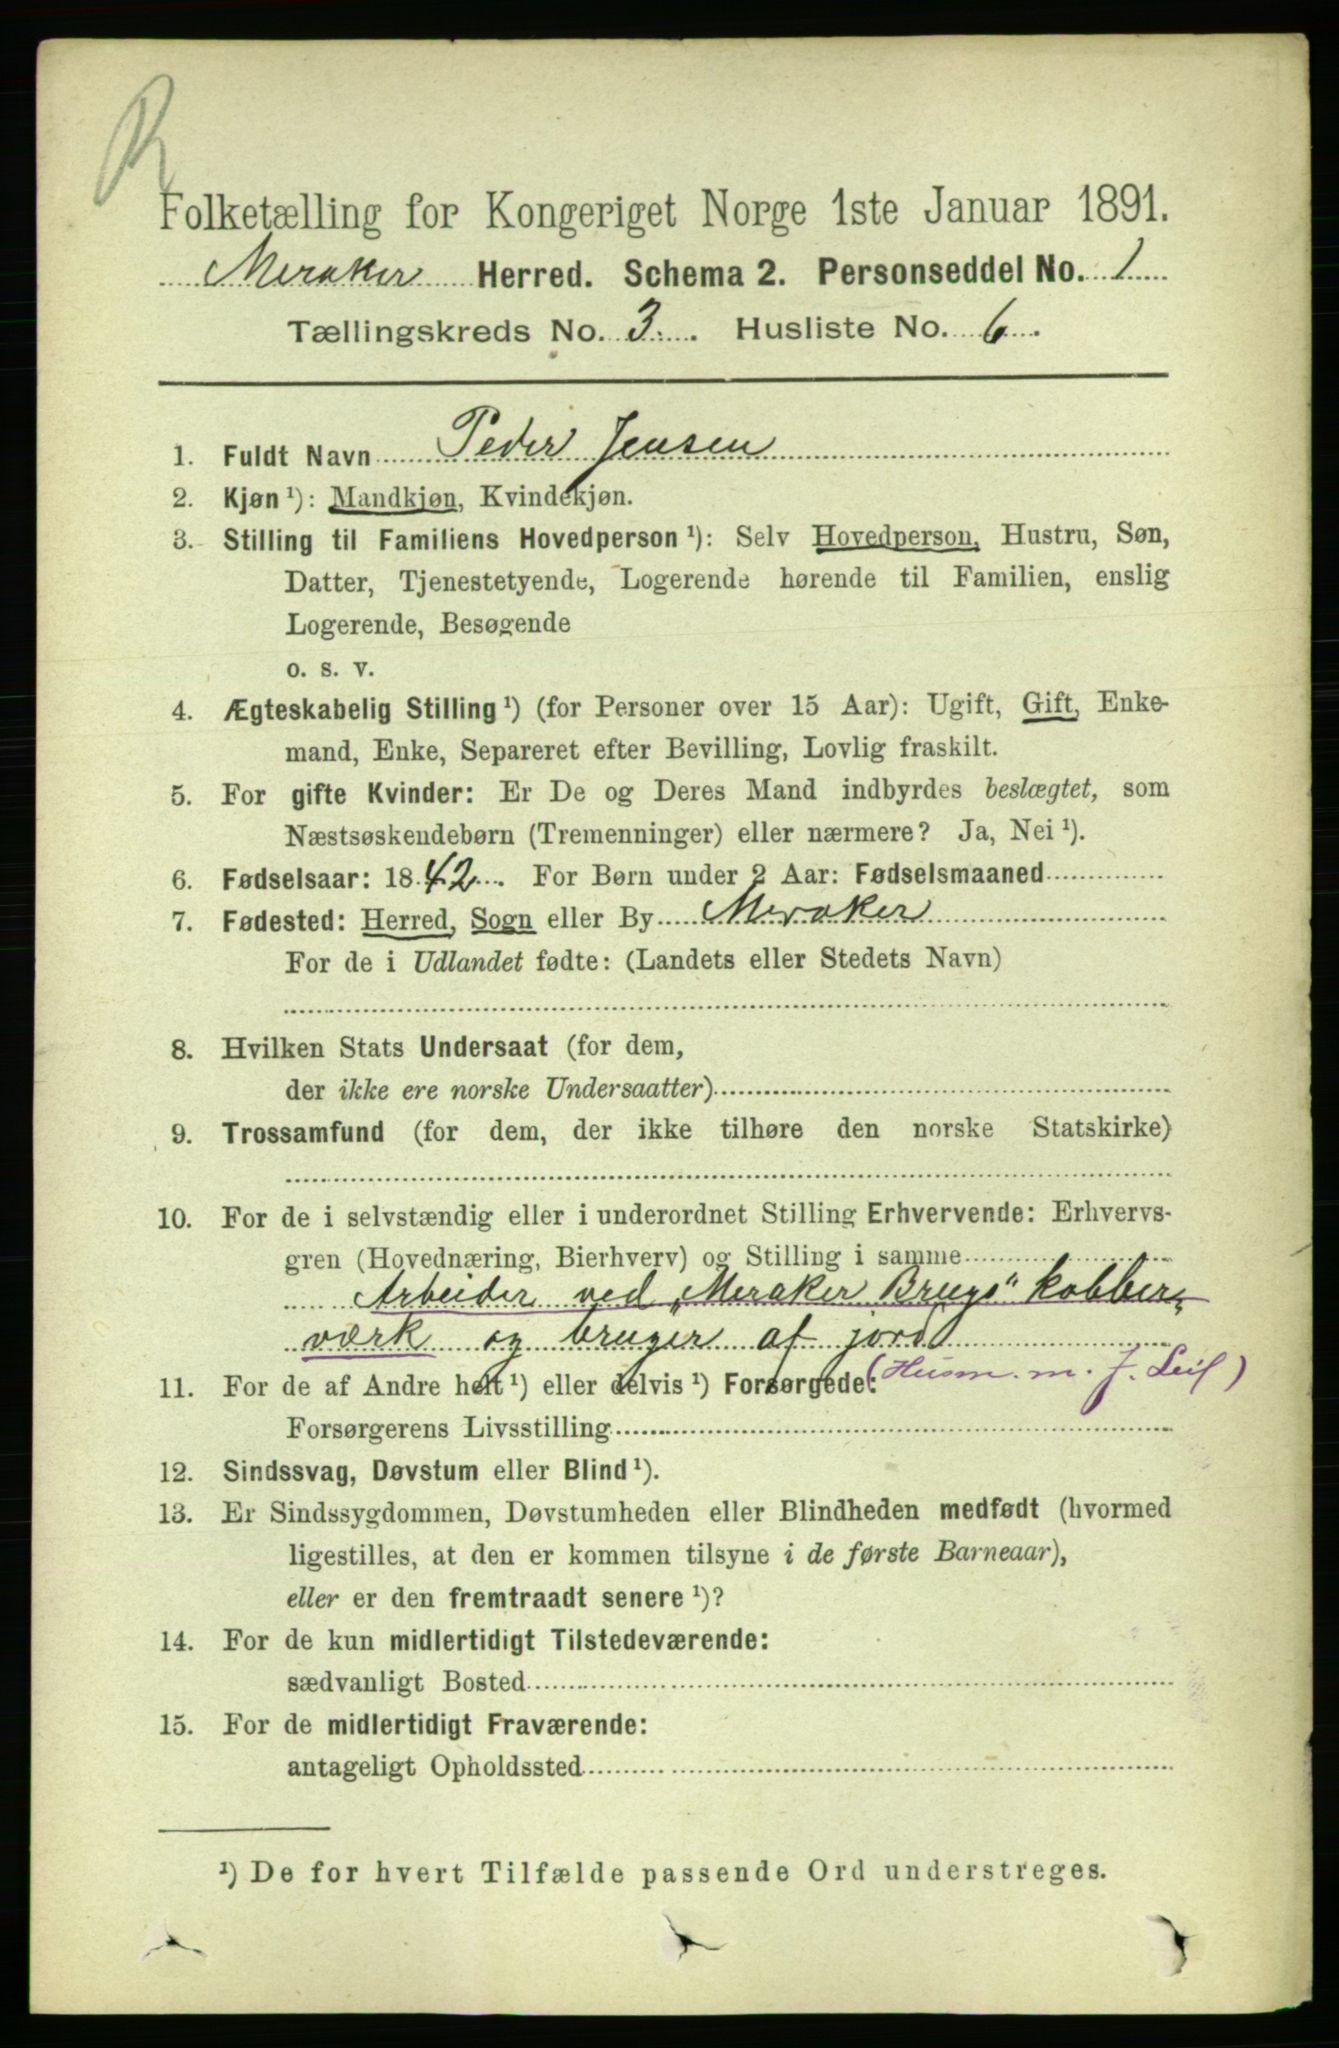 R
Folketælling for Kongeriget Norge 1ste Januar 1891.
Meraker Herred. Schema 2. Personseddel No. 1
Tællingskreds No. 3. Husliste No. 6.
1. Fuldt Navn Peder Jensen
2. Kjøn ¹): Mandkjøn, Kvindekjøn.
3. Stilling til Familiens Hovedperson ¹): Selv Hovedperson, Hustru, Søn,
Datter, Tjenestetyende, Logerende hørende til Familien, enslig
Logerende, Besøgende
o. s. v.
4. Ægteskabelig Stilling ¹) (for Personer over 15 Aar): Ugift, Gift, Enke-
mand, Enke, Separeret efter Bevilling, Lovlig fraskilt.
5. For gifte Kvinder: Er De og Deres Mand indbyrdes beslægtet, som
Næstsøskendebørn (Tremenninger) eller nærmere? Ja, Nei ¹).
6. Fødselsaar: 1842. For Børn under 2 Aar: Fødselsmaaned
7. Fødested: Herred, Sogn eller By Meraker
For de i Udlandet fødte: (Landets eller Stedets Navn)
8. Hvilken Stats Undersaat (for dem,
der ikke ere norske Undersaatter)
9. Trossamfund (for dem, der ikke tilhøre den norske Statskirke)
10. For de i selvstændig eller i underordnet Stilling Erhvervende: Erhvervs-
gren (Hovednæring, Bierhverv) og Stilling i samme
Arbeider ved „Meraker Brugs" kobber-
værk og bruger af jord
(Husm. m. J. Leil)
11. For de af Andre helt ¹) eller delvis ¹) Forsørgede:
Forsørgerens Livsstilling
12. Sindssvag, Døvstum eller Blind ¹).
13. Er Sindssygdommen, Døvstumheden eller Blindheden medfødt (hvormed
ligestilles, at den er kommen tilsyne i de første Barneaar),
eller er den fremtraadt senere ¹)?
14. For de kun midlertidigt Tilstedeværende:
sædvanligt Bosted
15. For de midlertidigt Fraværende:
antageligt Opholdssted
¹) De for hvert Tilfælde passende Ord understreges.